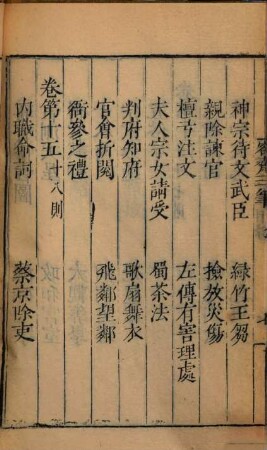 神宗待文武臣　緑竹王芻
親除諫官　撿放災傷
檀弓注文　左傳有害理處
夫人宗女請受　蜀茶法
判府知府　歌扇舞衣
官會折閱　飛鄰望鄰
衙參之禮
卷第十五十八則
內職命詞　蔡京除吏
容齋三筆